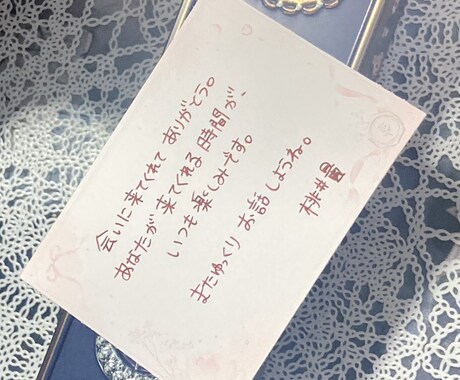 会いに来てくれて ありがとう。
あなたが 来てくれる 時間が、
いつも 楽しみです。
またゆっくり お話 しようね。
桃井